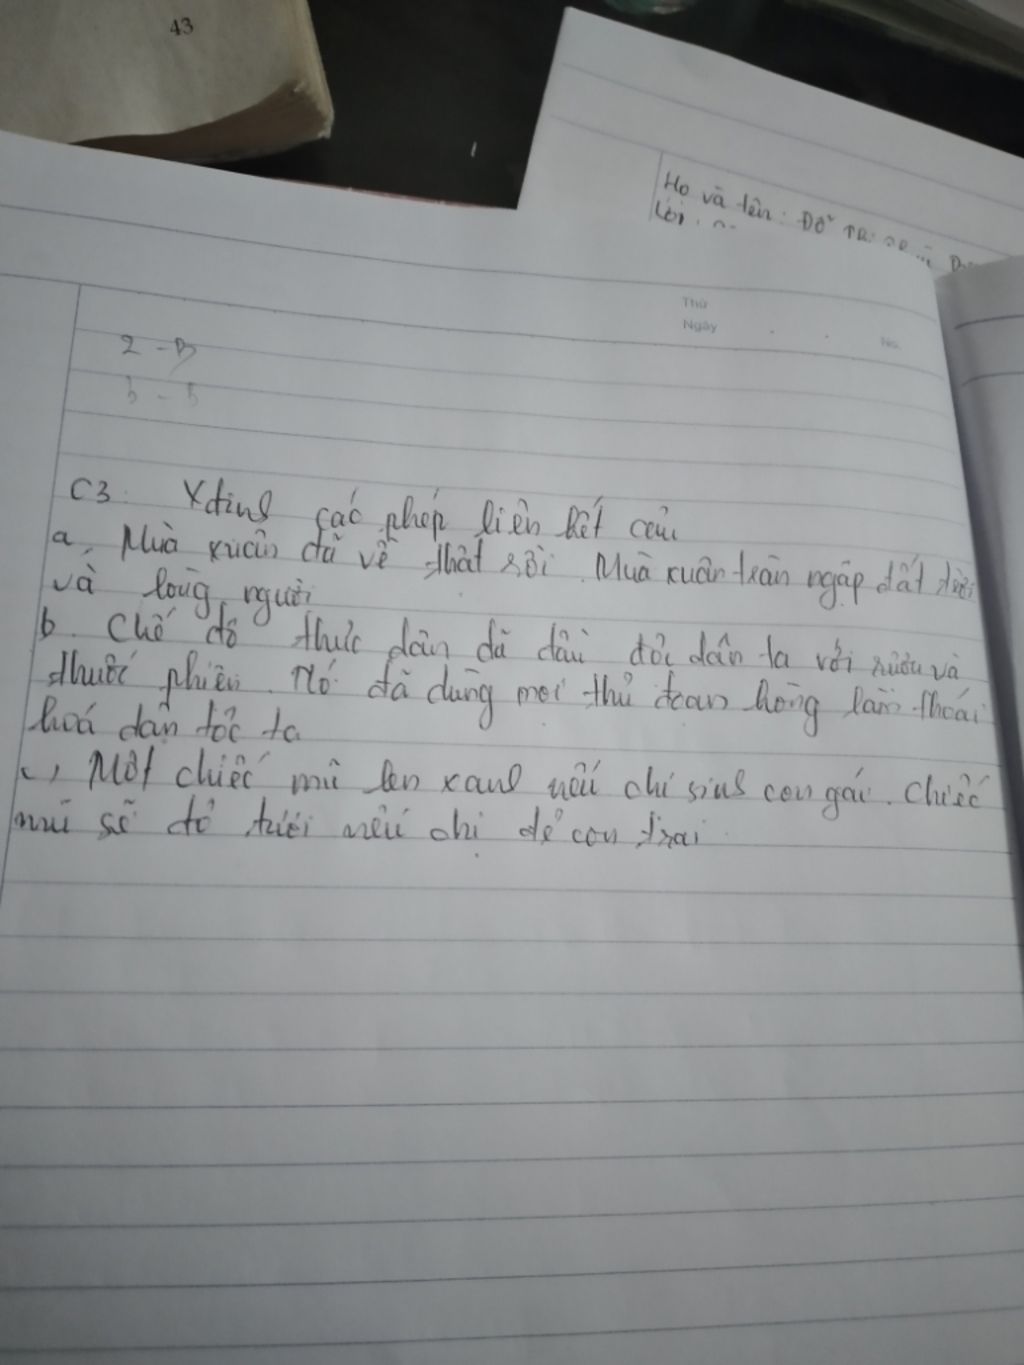 43
Họ và tên: Đỗ
Thứ
Ngày
No.
2 - B
C3: Xđinh các phép liên kết câu
a, Mùa xuân đã về thật rồi. Mùa xuân tràn ngập đất trời
và lòng người
b. Chế độ thực dân đã đầu độc dân ta với rượu và
thuốc phiện. Nó đã dùng mọi thủ đoạn hòng làm thoái
hoá dân tộc ta
c, Một chiếc mũ len xanh nếu chị sinh con gái. Chiếc
mũ sẽ đỏ tươi nếu chị đẻ con trai